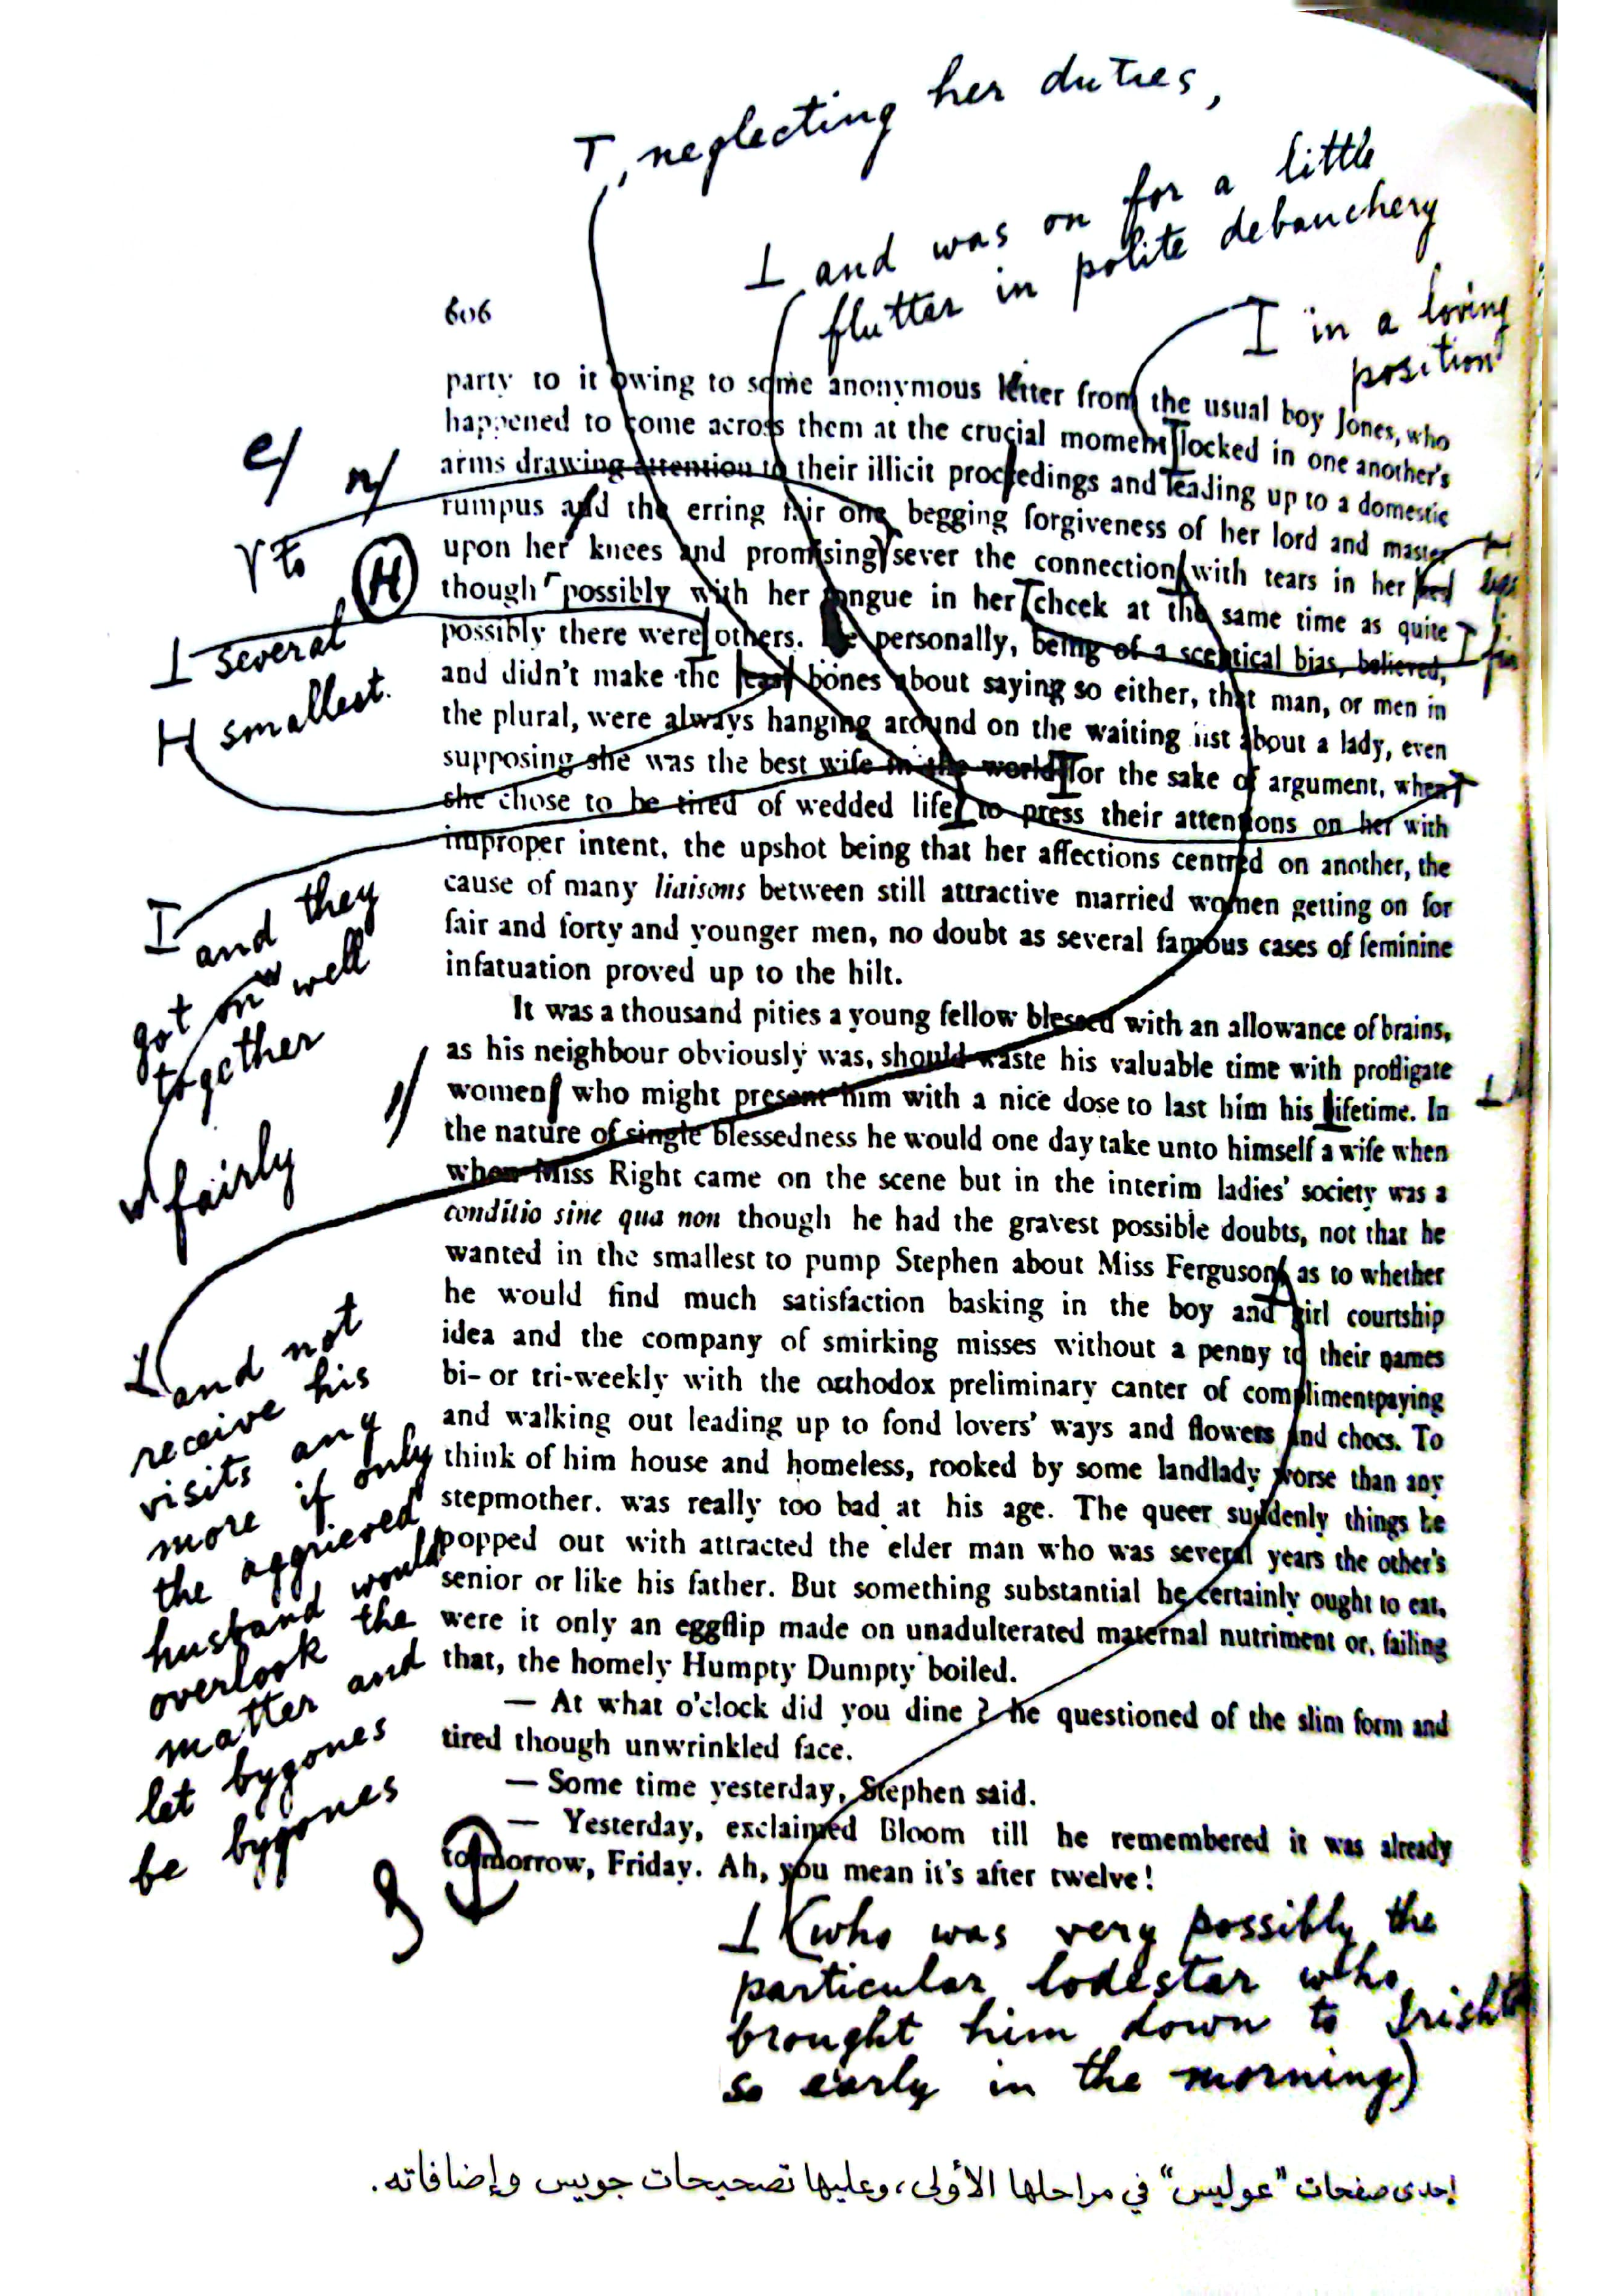 T, neglecting her duties,
I and was on for a little
flutter in polite debauchery
I in a loving
position
606
party to it owing to some anonymous letter from the usual boy Jones, who
happened to come across them at the crucial moment locked in one another's
arms drawing attention to their illicit proceedings and leading up to a domestic
rumpus and the erring fair one begging forgiveness of her lord and master
upon her knees and promising sever the connection with tears in her
though possibly with her tongue in her cheek at the same time as quite
possibly there were others. He personally, being of a sceptical bias, believed,
and didn't make the least bones about saying so either, that man, or men in
the plural, were always hanging around on the waiting list about a lady, even
supposing she was the best wife in the world for the sake of argument, when
she chose to be tired of wedded life to press their attentions on her with
improper intent, the upshot being that her affections centred on another, the
cause of many liaisons between still attractive married women getting on for
fair and forty and younger men, no doubt as several famous cases of feminine
infatuation proved up to the hilt.
It was a thousand pities a young fellow blessed with an allowance of brains,
as his neighbour obviously was, should waste his valuable time with profligate
women who might present him with a nice dose to last him his lifetime. In
the nature of single blessedness he would one day take unto himself a wife when
when Miss Right came on the scene but in the interim ladies' society was a
conditio sine qua non though he had the gravest possible doubts, not that he
wanted in the smallest to pump Stephen about Miss Ferguson, as to whether
he would find much satisfaction basking in the boy and girl courtship
idea and the company of smirking misses without a penny to their names
bi- or tri-weekly with the orthodox preliminary canter of complimentpaying
and walking out leading up to fond lovers' ways and flowers and chocs. To
think of him house and homeless, rooked by some landlady worse than any
stepmother. was really too bad at his age. The queer suddenly things he
popped out with attracted the elder man who was several years the other's
senior or like his father. But something substantial he certainly ought to eat,
were it only an eggflip made on unadulterated maternal nutriment or, failing
that, the homely Humpty Dumpty boiled.
— At what o'clock did you dine ? he questioned of the slim form and
tired though unwrinkled face.
— Some time yesterday, Stephen said.
— Yesterday, exclaimed Bloom till he remembered it was already
tomorrow, Friday. Ah, you mean it's after twelve!
e/
n/
to
H
I several
H smallest.
I and they
got on well
together
fairly
I and not
receive his
visits any
more if only
the aggrieved
husband would
overlook the
matter and
let bygones
be bygones
I (who was very possibly the
particular lodestar who
brought him down to Irish
so early in the morning)
إحدى صفحات "عوليس" في مراحلها الأولى، وعليها تصحيحات جويس وإضافاته.